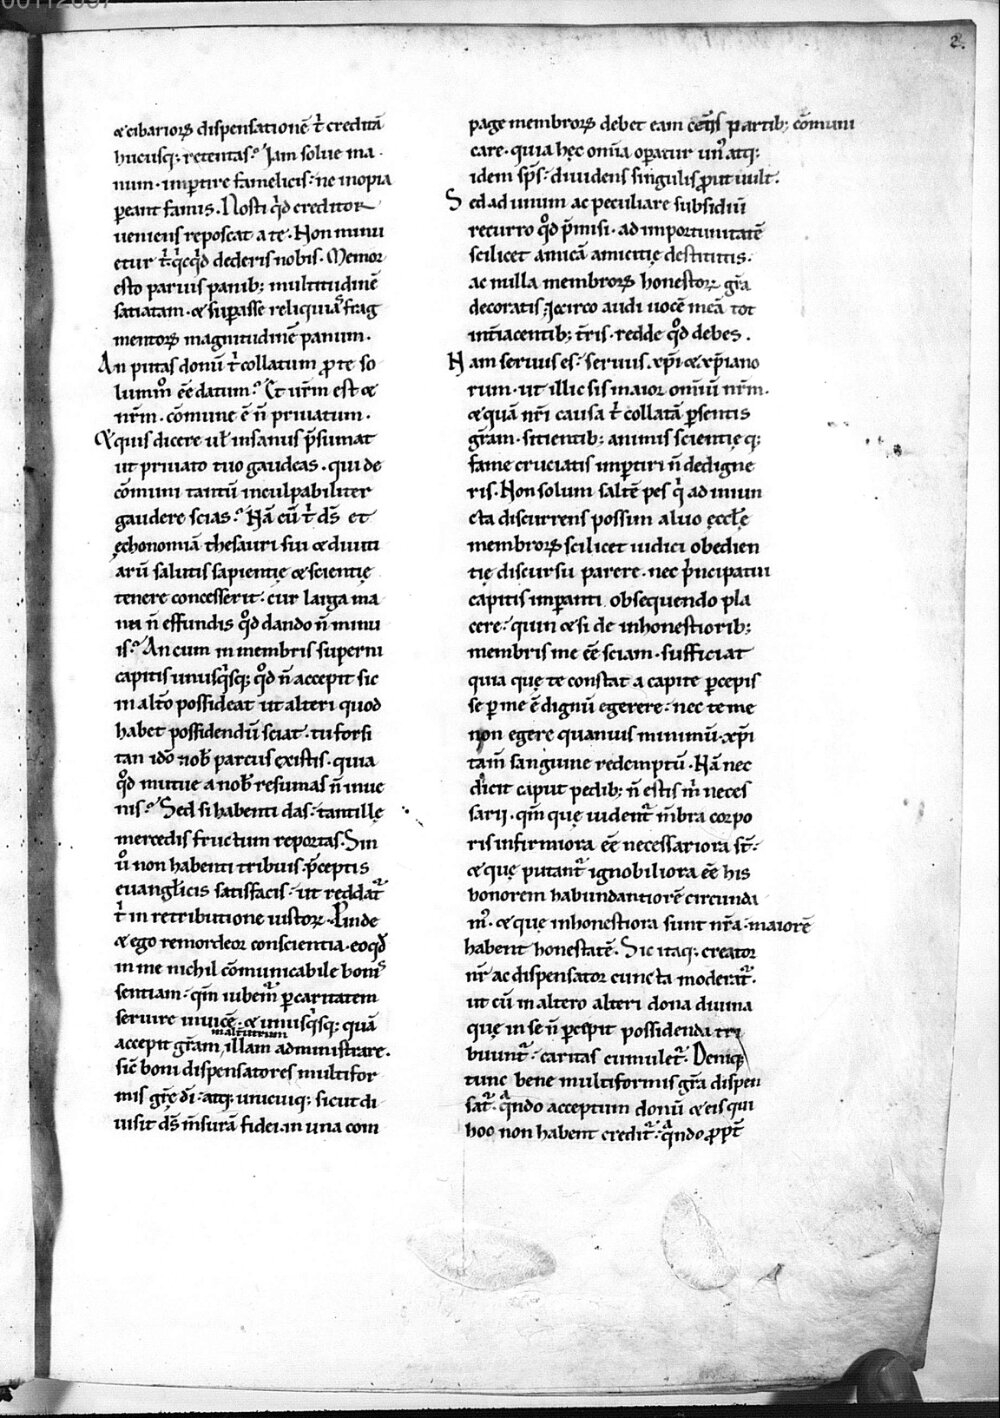 00112057
2.
⁊ cibarioꝝ dispensationē t̄ creditā
hucusq; retentas? Iam solue ma
num · imꝑtire famelicis · ne inopia
ꝑeant famis. Nosti qd̄ creditor
ueniens reposcat a te. Non minu
etur t̄ qicqd dederis nobis. Memor
esto paruis panib; multitudinē
satiatam · & suꝑasse reliquiaꝝ frag
mentoꝝ magnitudinē panum.
An putas donū t̄ collatum ꝓ te so
lummo ēē datum? Et urm̄ est &
nrm̄. cōmune ē n̄ priuatum.
Et quis dicere ul̄ insanus p̄sumat
ut priuato tuo gaudeas. qui de
cōmuni tantū inculpabiliter
gaudere scias? Nā cū t̄ ds̄ et
ęchonomiā thesauri sui & diuiti
arū salutis sapientię & scientię
tenere concesserit. cur larga ma
nu n̄ effundis qd̄ dando n̄ minu
is? An cum in membris superni
capitis unusqisq; qd̄ n̄ accepit sic
in altō possideat ut alteri quod
habet possidendū sciat. tu forsi
tan idō nob̄ parcus existis. quia
qd̄ mutue a nob̄ resumas n̄ inue
nis? Sed si habenti das. tantillę
mercedis fructum reportas. Sin
u̅o non habenti tribuis. p̄ceptis
euangl̄icis satisfacis. ut reddat᷑
t̄ in retributione iustoꝝ. Proinde
& ego remordeor conscientia. eoqd̄
in me nichil cōmunicabile boni
sentiam. qm̄ iubem᷑ ꝑ caritatem
seruire inuicē. & unusqisq; quā
in alterutrum
accepit grām, illam administrare.
sic̄ boni dispensatores multifor
mis grę̄ dī. atq; unicuiq; sicut di
uisit ds̄ m̄surā fidei. an una com
page membroꝝ debet eam cet̄is partib; cōmuni
care. quia hęc om̄ia oꝑatur un᷒ atq;
idem sp̄s. diuidens singulis ꝓut uult.
Sed ad unum ac peculiare subsidiū
recurro qd̄ p̄misi. ad importunitatē
scilicet amicā amicitię destitutis.
ac nulla membroꝝ honestoꝝ grā
decoratis. Icirco audi uocē meā tot
int̄iacentib; t̄ris. redde qd̄ debes.
Nam seruus es. seruus xp̄i & xp̄iano
rum. ut illic sis maior omniū nrm̄.
& quā nrī causa t̄ collatā ꝑsentis
grām. sitientib; animis scientię q;
fame cruciatis imꝑtiri n̄ dedigne
ris. Non solum saltē pes qi ad mun
cta discurrens possum aluo ęccl̄ę
membroꝝ scilicet uidici obedien
tię discursu parere. nec p̄ncipatui
capitis imꝑanti obsequendo pla
cere. quin & si de inhonestiorib;
membris me ēē sciam. sufficiat
quia quę te constat a capite ꝑcepis
se ꝑ me ē dignū egerere. nec te me
non egere quamuis minimū xp̄i
tam̄ sanguine redemptū. Nā nec
dicit caput pedib; n̄ estis m̄ neces
sarii. qm̄ quę uident᷑ m̄bra corpo
ris infirmiora ēē necessariora st̄.
& quę putant᷑ ignobiliora ēē his
honorem habundantiorē circunda
m᷒. & quę inhonestiora sunt nrā. maiorē
habent honestatē. Sic itaq; creator
nr̄ ac dispensator cuncta moderat᷑.
ut cū in altero alteri dona diuina
quę in se n̄ ꝑcepit possidenda tri
buunt᷑. caritas cumulet᷑. Deniq;
tunc bene multiformis grā dispen
sat᷑. qando acceptum donū & eis qui
hoc non habent credit᷑. qando ꝓpt̄